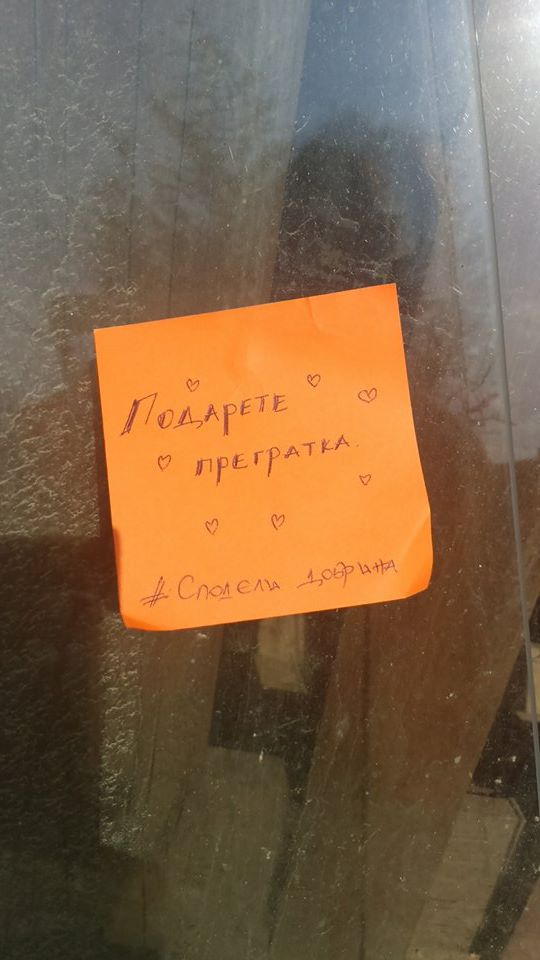 Подарете
прегратка.
#Сподели добрина